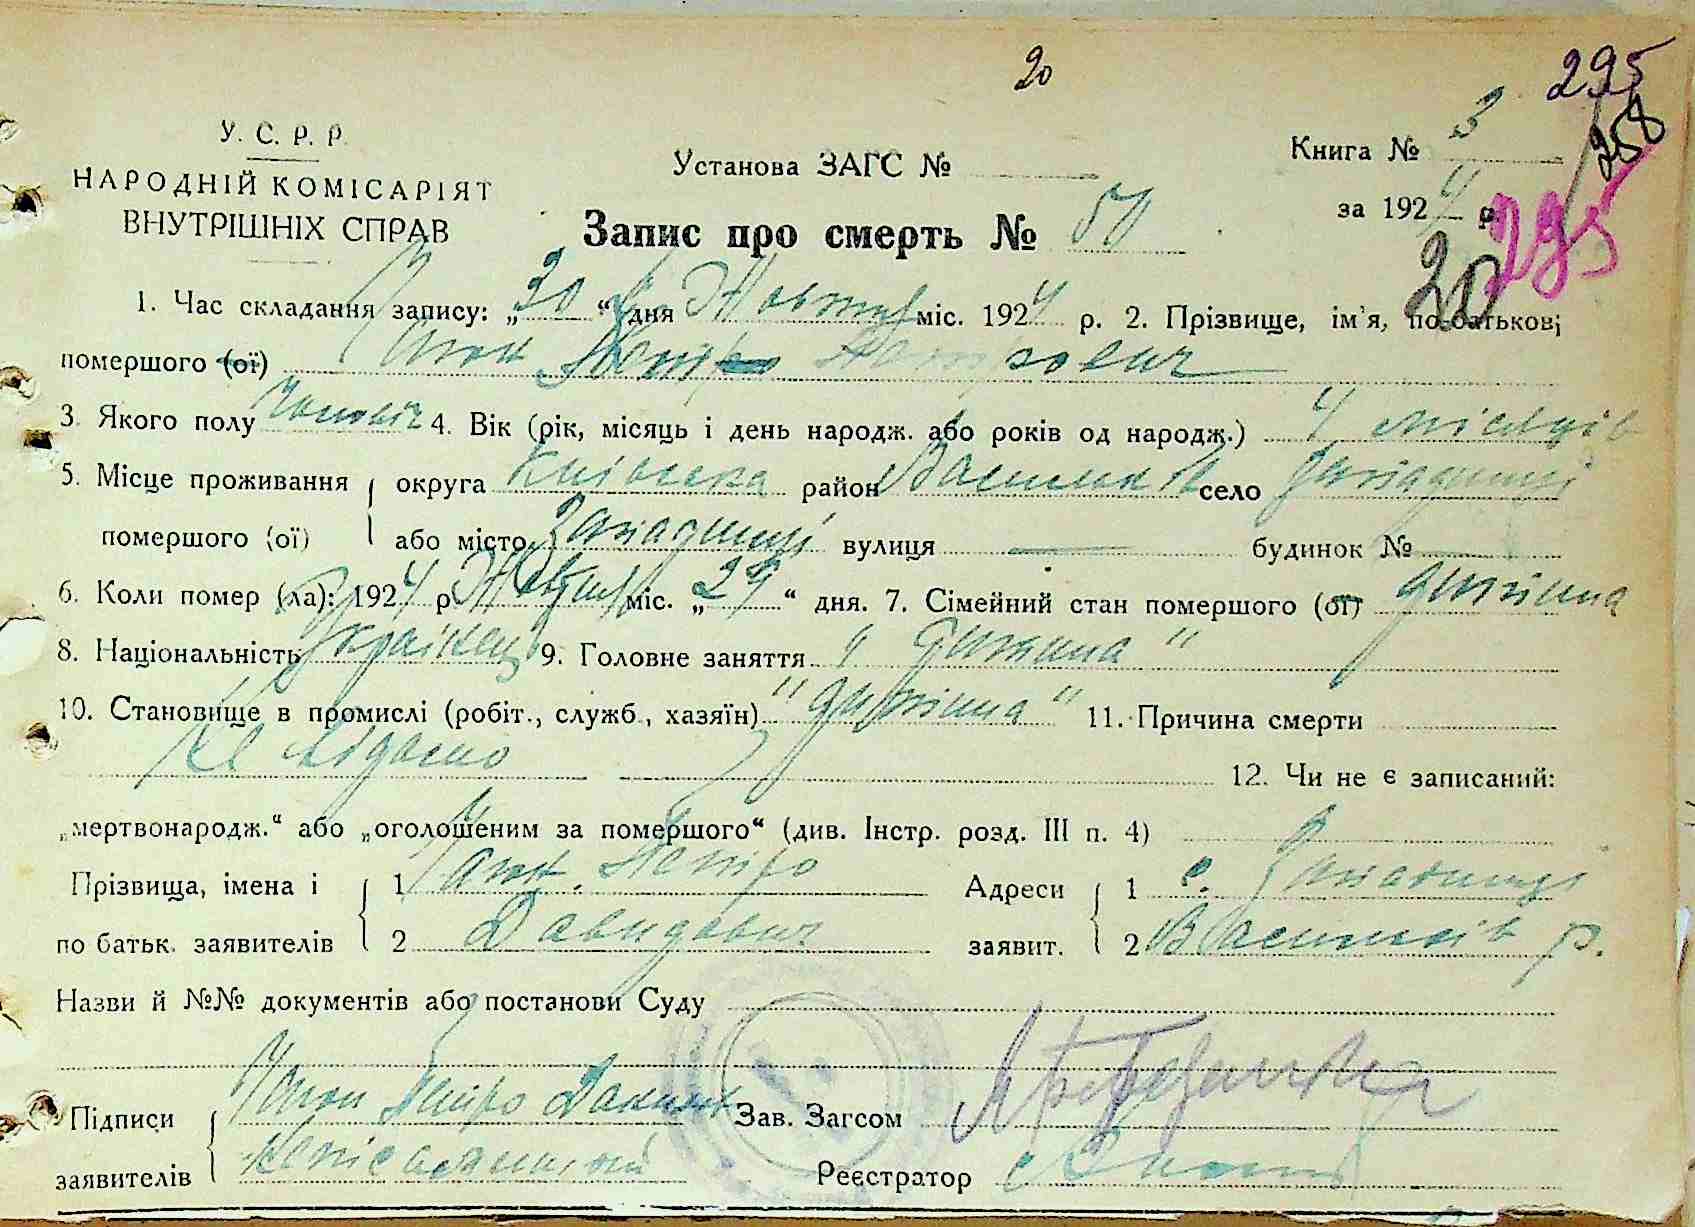 20
295
258
У. С. Р. Р.
НАРОДНІЙ КОМІСАРІЯТ
ВНУТРІШНІХ СПРАВ
Установа ЗАГС №
Книга № 3
за 1924 р.
295
20
Запис про смерть № 50
1. Час складання запису: „30“ дня Жовтня міс. 1924 р. 2. Прізвище, ім'я, по батькові
помершого (ої) Петро Петрович
3. Якого полу Чоловіч 4. Вік (рік, місяць і день народж. або років од народж.) 4 місяців
5. Місце проживання округа Київська район Васильків село
помершого (ої) або місто вулиця — будинок №
6. Коли помер (ла): 1924 р. Жовтня міс. „29“ дня. 7. Сімейний стан помершого (ої) дитина
8. Національність Українец 9. Головне заняття "дитина"
10. Становище в промислі (робіт., служб., хазяїн) "дитина" 11. Причина смерти
Не відомо
12. Чи не є записаний:
„мертвонародж.“ або „оголошеним за помершого“ (див. Інстр. розд. III п. 4)
Прізвища, імена і 1 Петро Адреси 1 с.
по батьк. заявителів 2 Давидович заявит. 2 Васильків р.
Назви й №№ документів або постанови Суду
Підписи Петро Зав. Загсом
заявителів Реєстратор